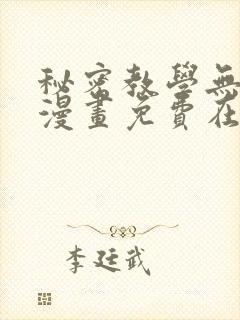 秘密教學無
漫畫免費在
李廷武